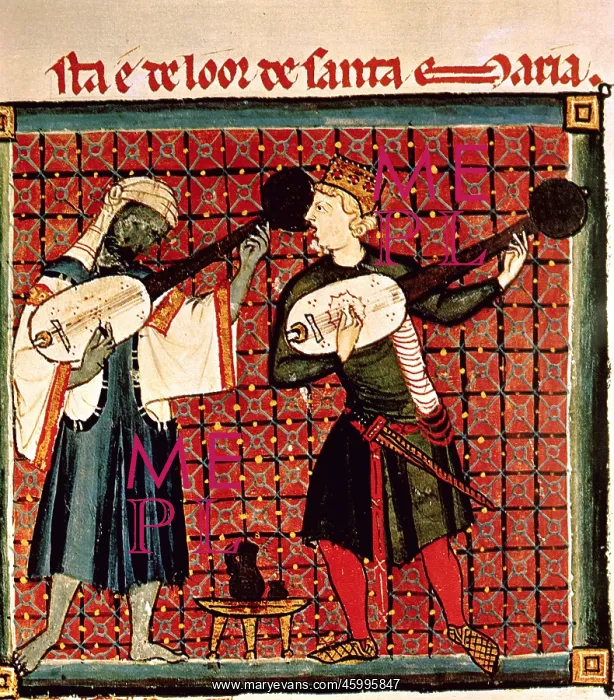 sta é de loor de santa Maria.
ME
PL
ME
PL
www.maryevans.com/45995847